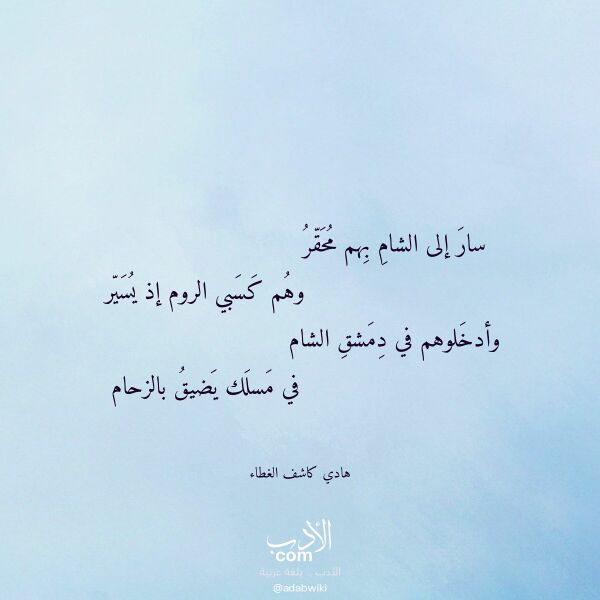 سارَ إلى الشامِ بِهم مُحَقّرُ
وهُم كَسَبي الروم إذ يُسَيّر
وأدخَلوهم في دِمَشقِ الشام
في مَسلَك يَضيقُ بالزحام
هادي كاشف الغطاء
الأدب
com
الأدب .. بلغة عربية
@adabwiki